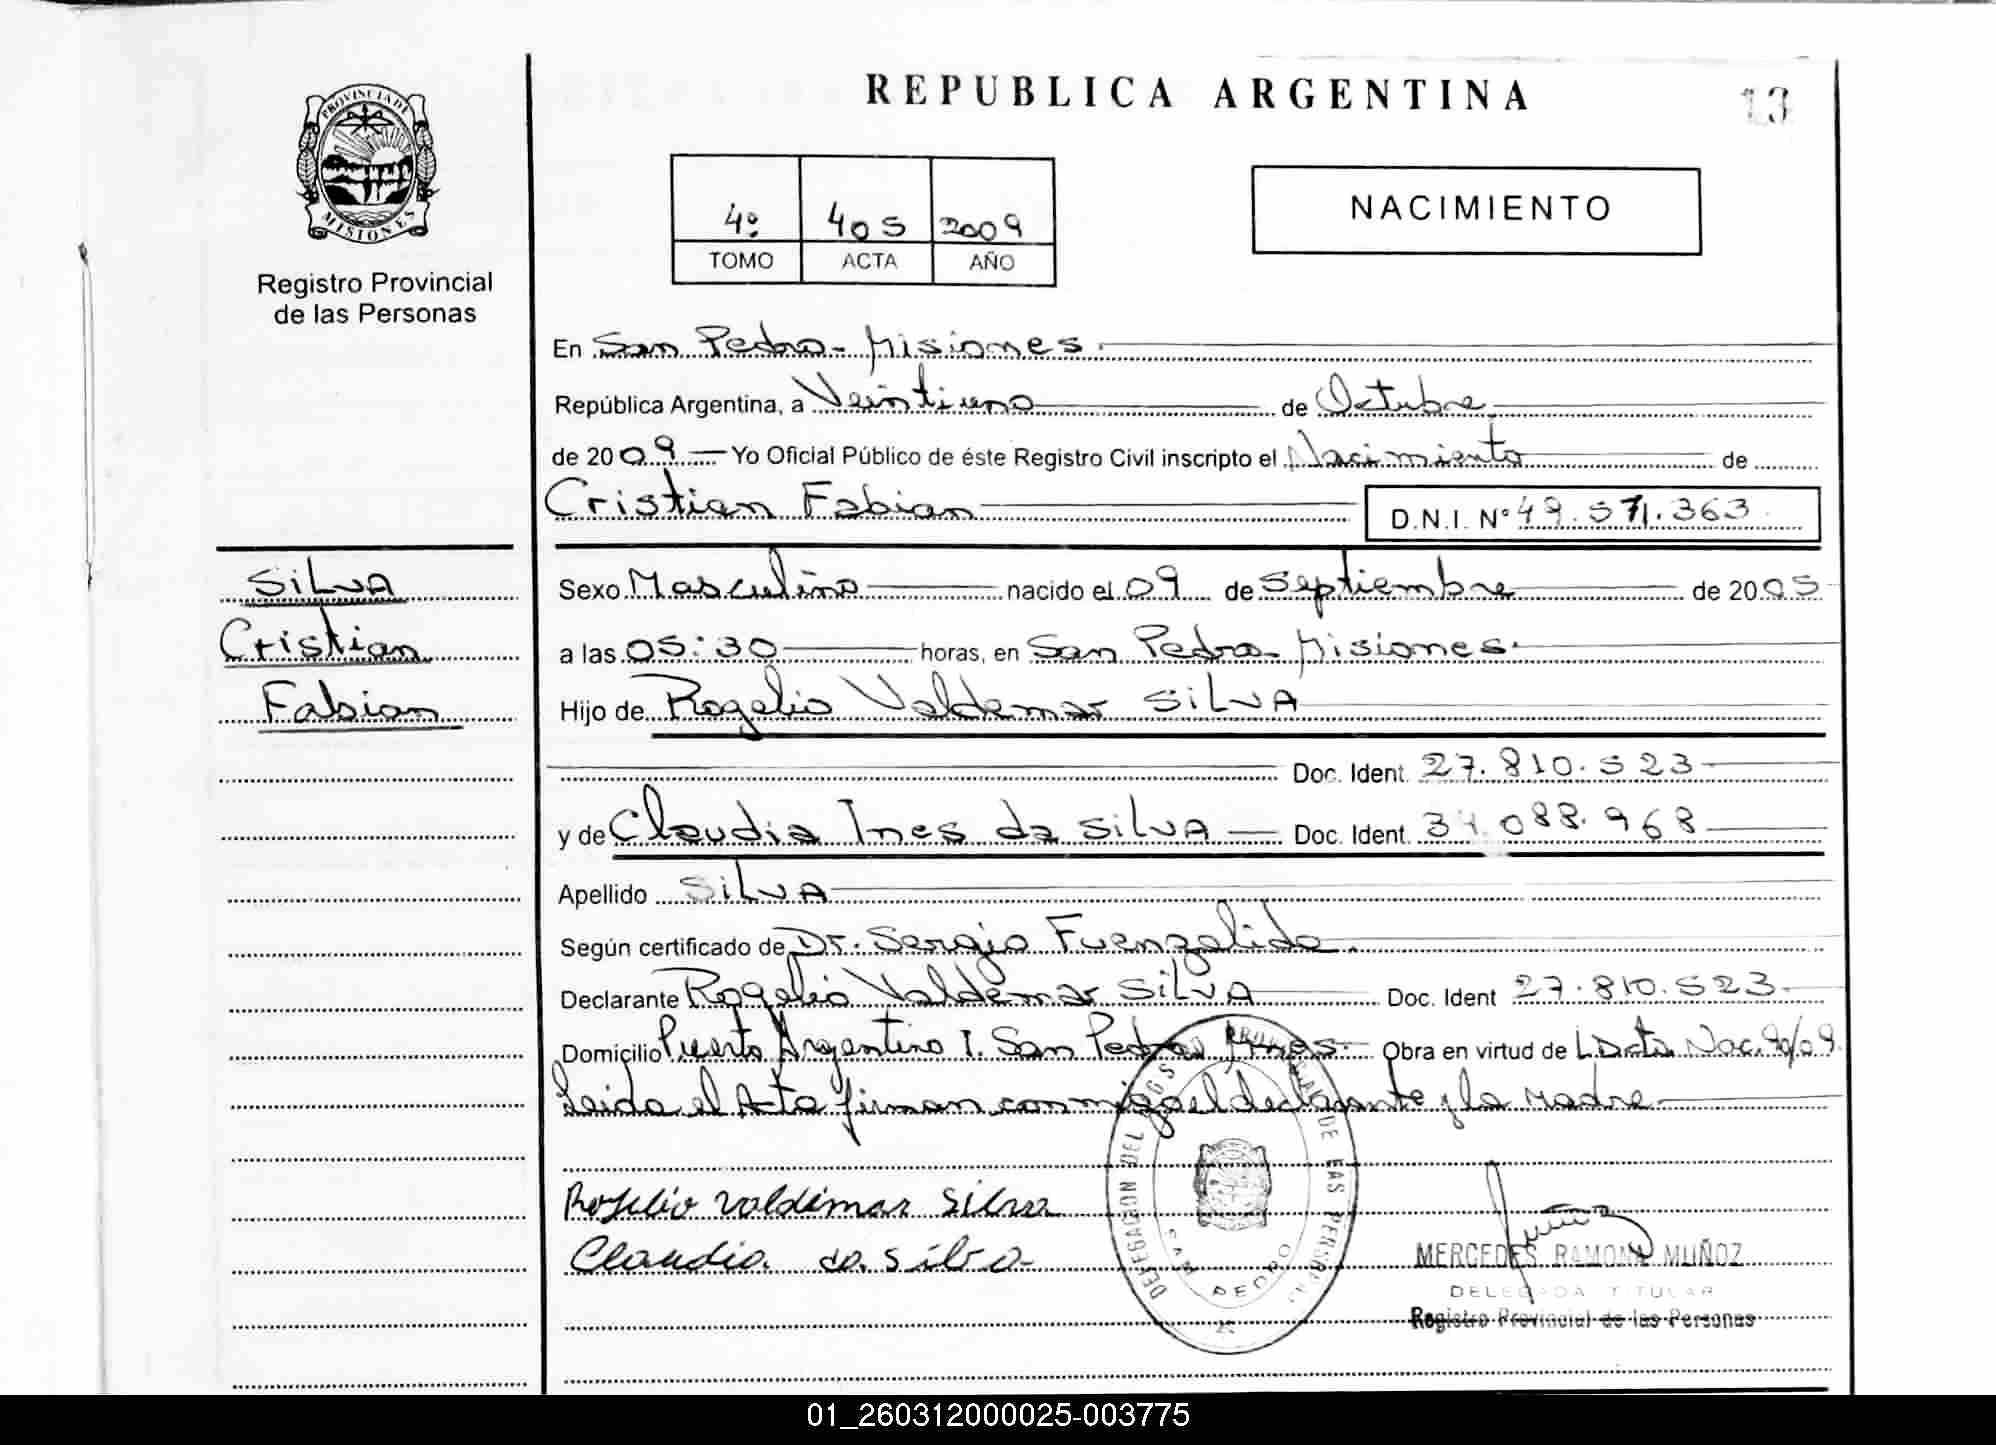 PROVINCIA DE
MISIONES
Registro Provincial
de las Personas
REPUBLICA ARGENTINA
13
4º 405 2009
TOMO ACTA AÑO
NACIMIENTO
En San Pedro - Misiones.
República Argentina, a Veintiuno de Octubre
de 2009 Yo Oficial Público de éste Registro Civil inscripto el Nacimiento de
Cristian Fabian D.N.I. Nº 49.571.363
SILVA
Cristian
Fabian
Sexo Masculino nacido el 09 de Septiembre de 2005
a las 05:30 horas, en San Pedro - Misiones.
Hijo de Rogelio Valdemar SILVA
Doc. Ident. 27.810.523
y de Claudia Ines da SILVA Doc. Ident. 34.088.968
Apellido SILVA
Según certificado de Dr. Sergio Fuenzalida.
Declarante Rogelio Valdemar SILVA Doc. Ident 27.810.523
Domicilio Puerto Argentino I. San Pedro Mnes. Obra en virtud de L. Dcto Nac. 90/09.
Leida el Acta firman conmigo el declarante y la Madre
Rogelio Valdemar Silva
Claudia da Silva
DELEGACION DEL RGS PROVINCIAL DE LAS PERSONAS
SAN PEDRO
MERCEDES RAMONA MUÑOZ
DELEGADA TITULAR
Registro Provincial de las Personas
01_260312000025-003775